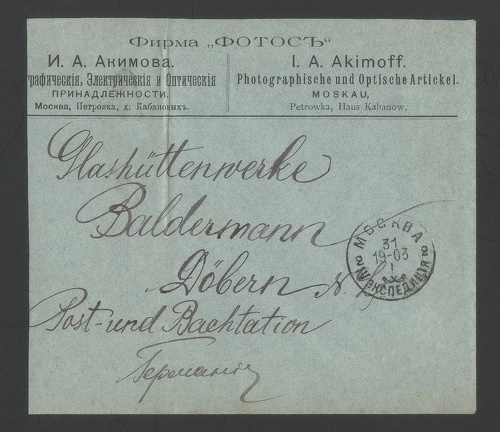 Фирма „ФОТОСЪ“
И. А. Акимова.
графическія, Электрическія и Оптическія
ПРИНАДЛЕЖНОСТИ.
Москва, Петровка, д. Кабановыхъ.
I. A. Akimoff.
Photographische und Optische Artickel.
MOSKAU,
Petrowka, Haus Kabanow.
Glashüttenwerke
Baldermann
Döbern N.
Post- und Bachtation
Германія
МОСКВА
31
19-03
I
ЭКСПЕДИЦІЯ